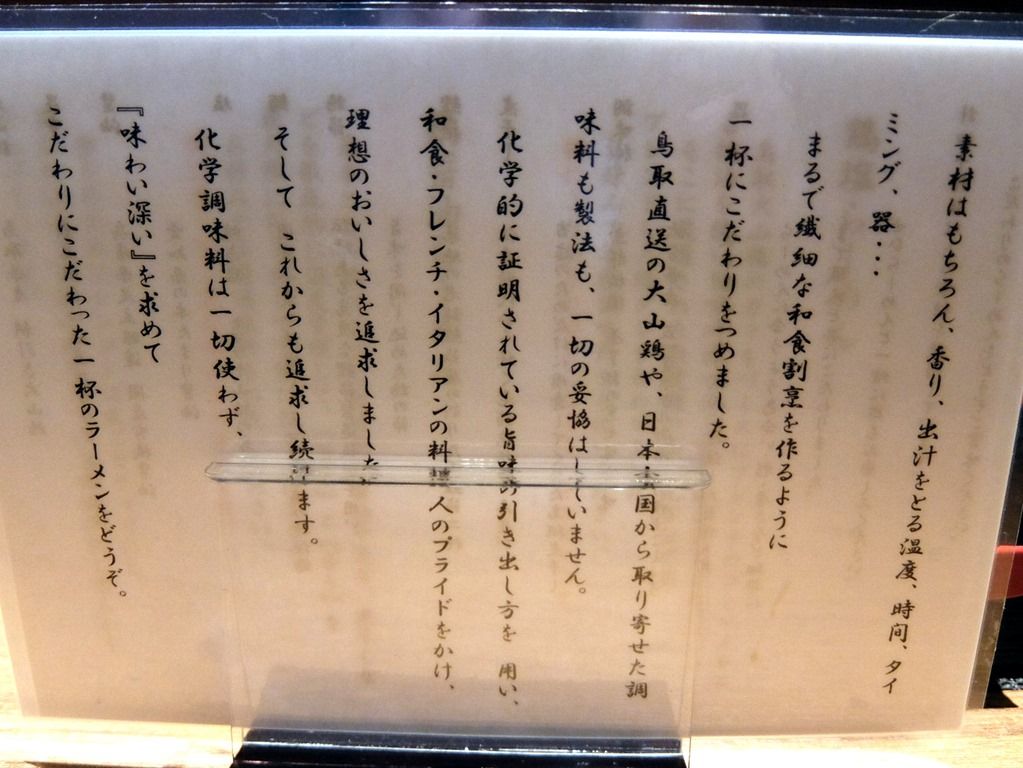 素材はもちろん、香り、出汁をとる温度、時間、タイ
ミング、器・・・
まるで繊細な和食割烹を作るように
一杯にこだわりをつめました。
鳥取直送の大山鶏や、日本全国から取り寄せた調
味料も製法も、一切の妥協はしていません。
化学的に証明されている旨味の引き出し方を 用い、
和食・フレンチ・イタリアンの料理人のプライドをかけ、
理想のおいしさを追求しました。
そして これからも追求し続けます。
化学調味料は一切使わず、
『味わい深い』を求めて
こだわりにこだわった一杯のラーメンをどうぞ。